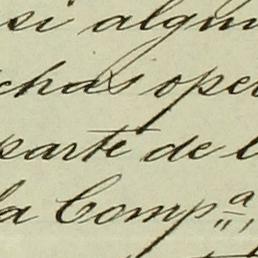 si algun
chas oper
parte de l
la Comp.ª,